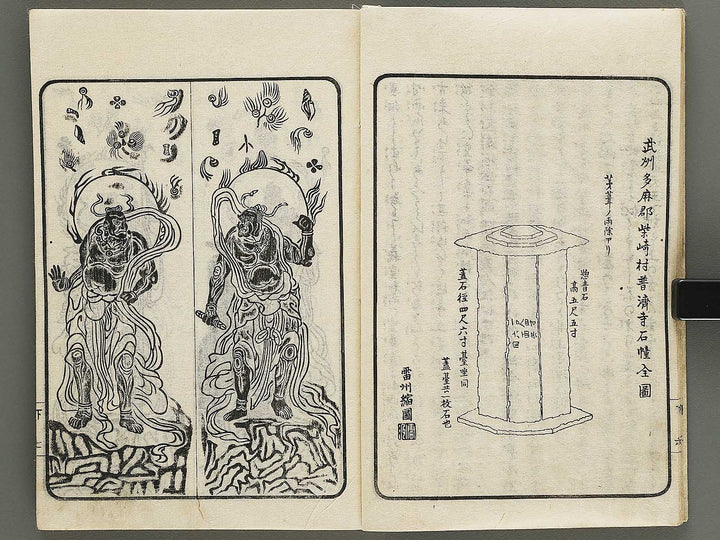 武州多麻郡柴崎村普濟寺石幢全圖
茅葺ノ雨除アリ
惣青石
高五尺五寸
蓋石徑四尺六寸臺座同
蓋臺共一枚石也
雷州縮圖
小